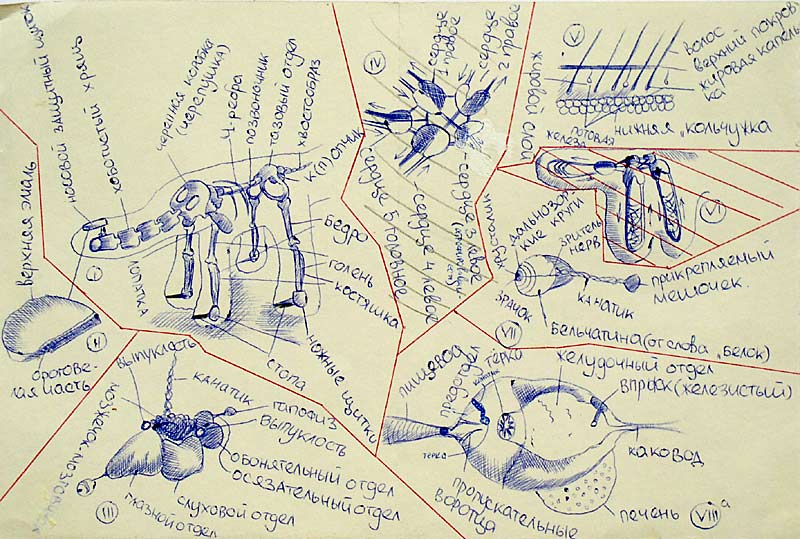 носовой защитный щиток
хоботистый хрящ
черепная коробка
(черепушка)
4 ребра
позвоночник
тазовый отдел
хвостообраз
к(п)опчик
бедро
голень
костяшка
ножные щитки
стопа
лопатка
I
верхняя эмаль
ороговелая часть
II
выпуклость
канатик
гапофиз
выпуклость
обонятельный отдел
осязательный отдел
слуховой отдел
глазной отдел
мозжечок-мозга
III
IV
сердце
1 правое
сердце
2 правое
сердце 3 левое
сердце 4 левое
сердце 5 головное
V
волос
верхний покров
жировая капель
ка
нижняя „кольчужка
потовая
железа
жировой слой
VI
дальнозор
кие круги
зритель
нерв
прикрепляемый
мешочек.
канатик
зрачок
бельчатина (от слова „белок)
VII
пищевод
предотдел
тёрка
желудочный отдел
впрфк (железистый)
каковод
тёрка
пропускательные
воротца
печень
VIII а